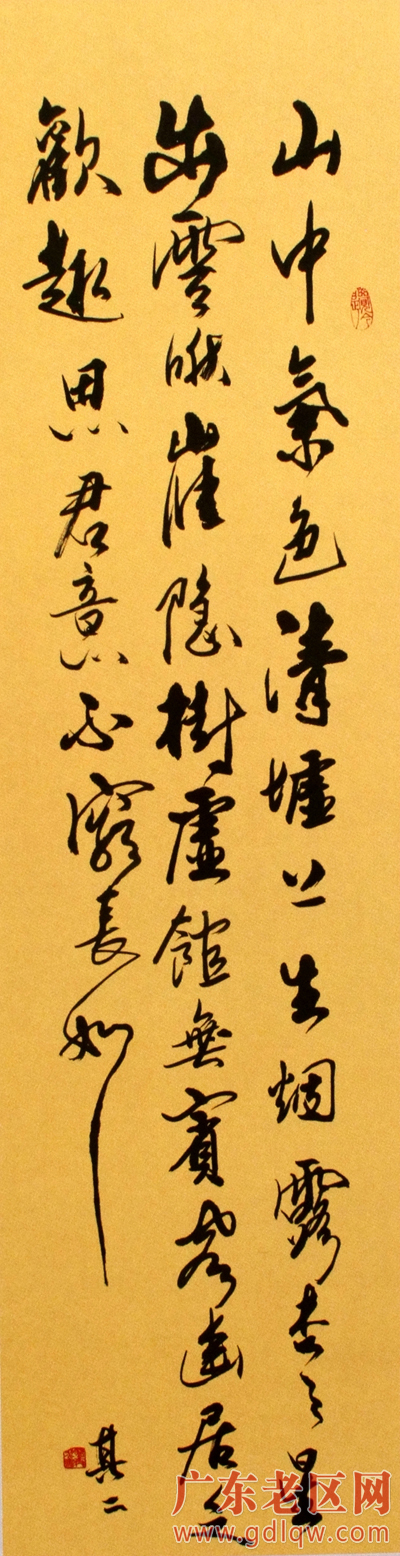 山中氣色滿墟上生烟露杳々星
出雲啾隱樹虛館無賓客幽居乏
歡趣思君意不窮長如
其二
广东老区网
www.gdlqw.com